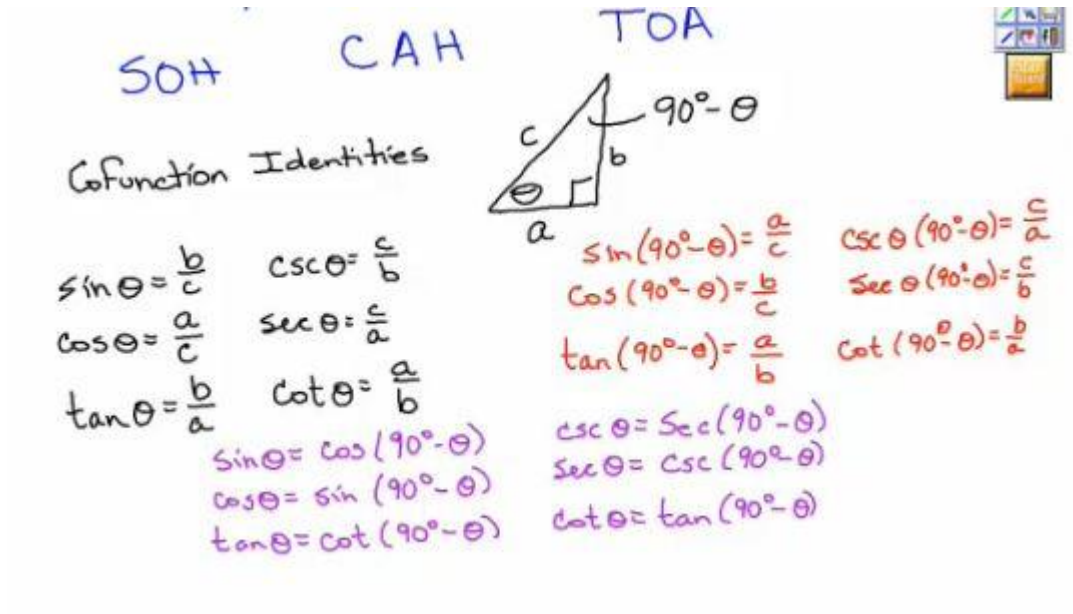 SOH CAH TOA
90° - θ
c
b
θ
a
Cofunction Identities
sin θ = b/c csc θ = c/b
cos θ = a/c sec θ = c/a
tan θ = b/a cot θ = a/b
sin (90° - θ) = a/c csc θ (90° - θ) = c/a
cos (90° - θ) = b/c sec θ (90° - θ) = c/b
tan (90° - θ) = a/b cot (90° - θ) = b/a
sin θ = cos (90° - θ) csc θ = sec (90° - θ)
cos θ = sin (90° - θ) sec θ = csc (90° - θ)
tan θ = cot (90° - θ) cot θ = tan (90° - θ)